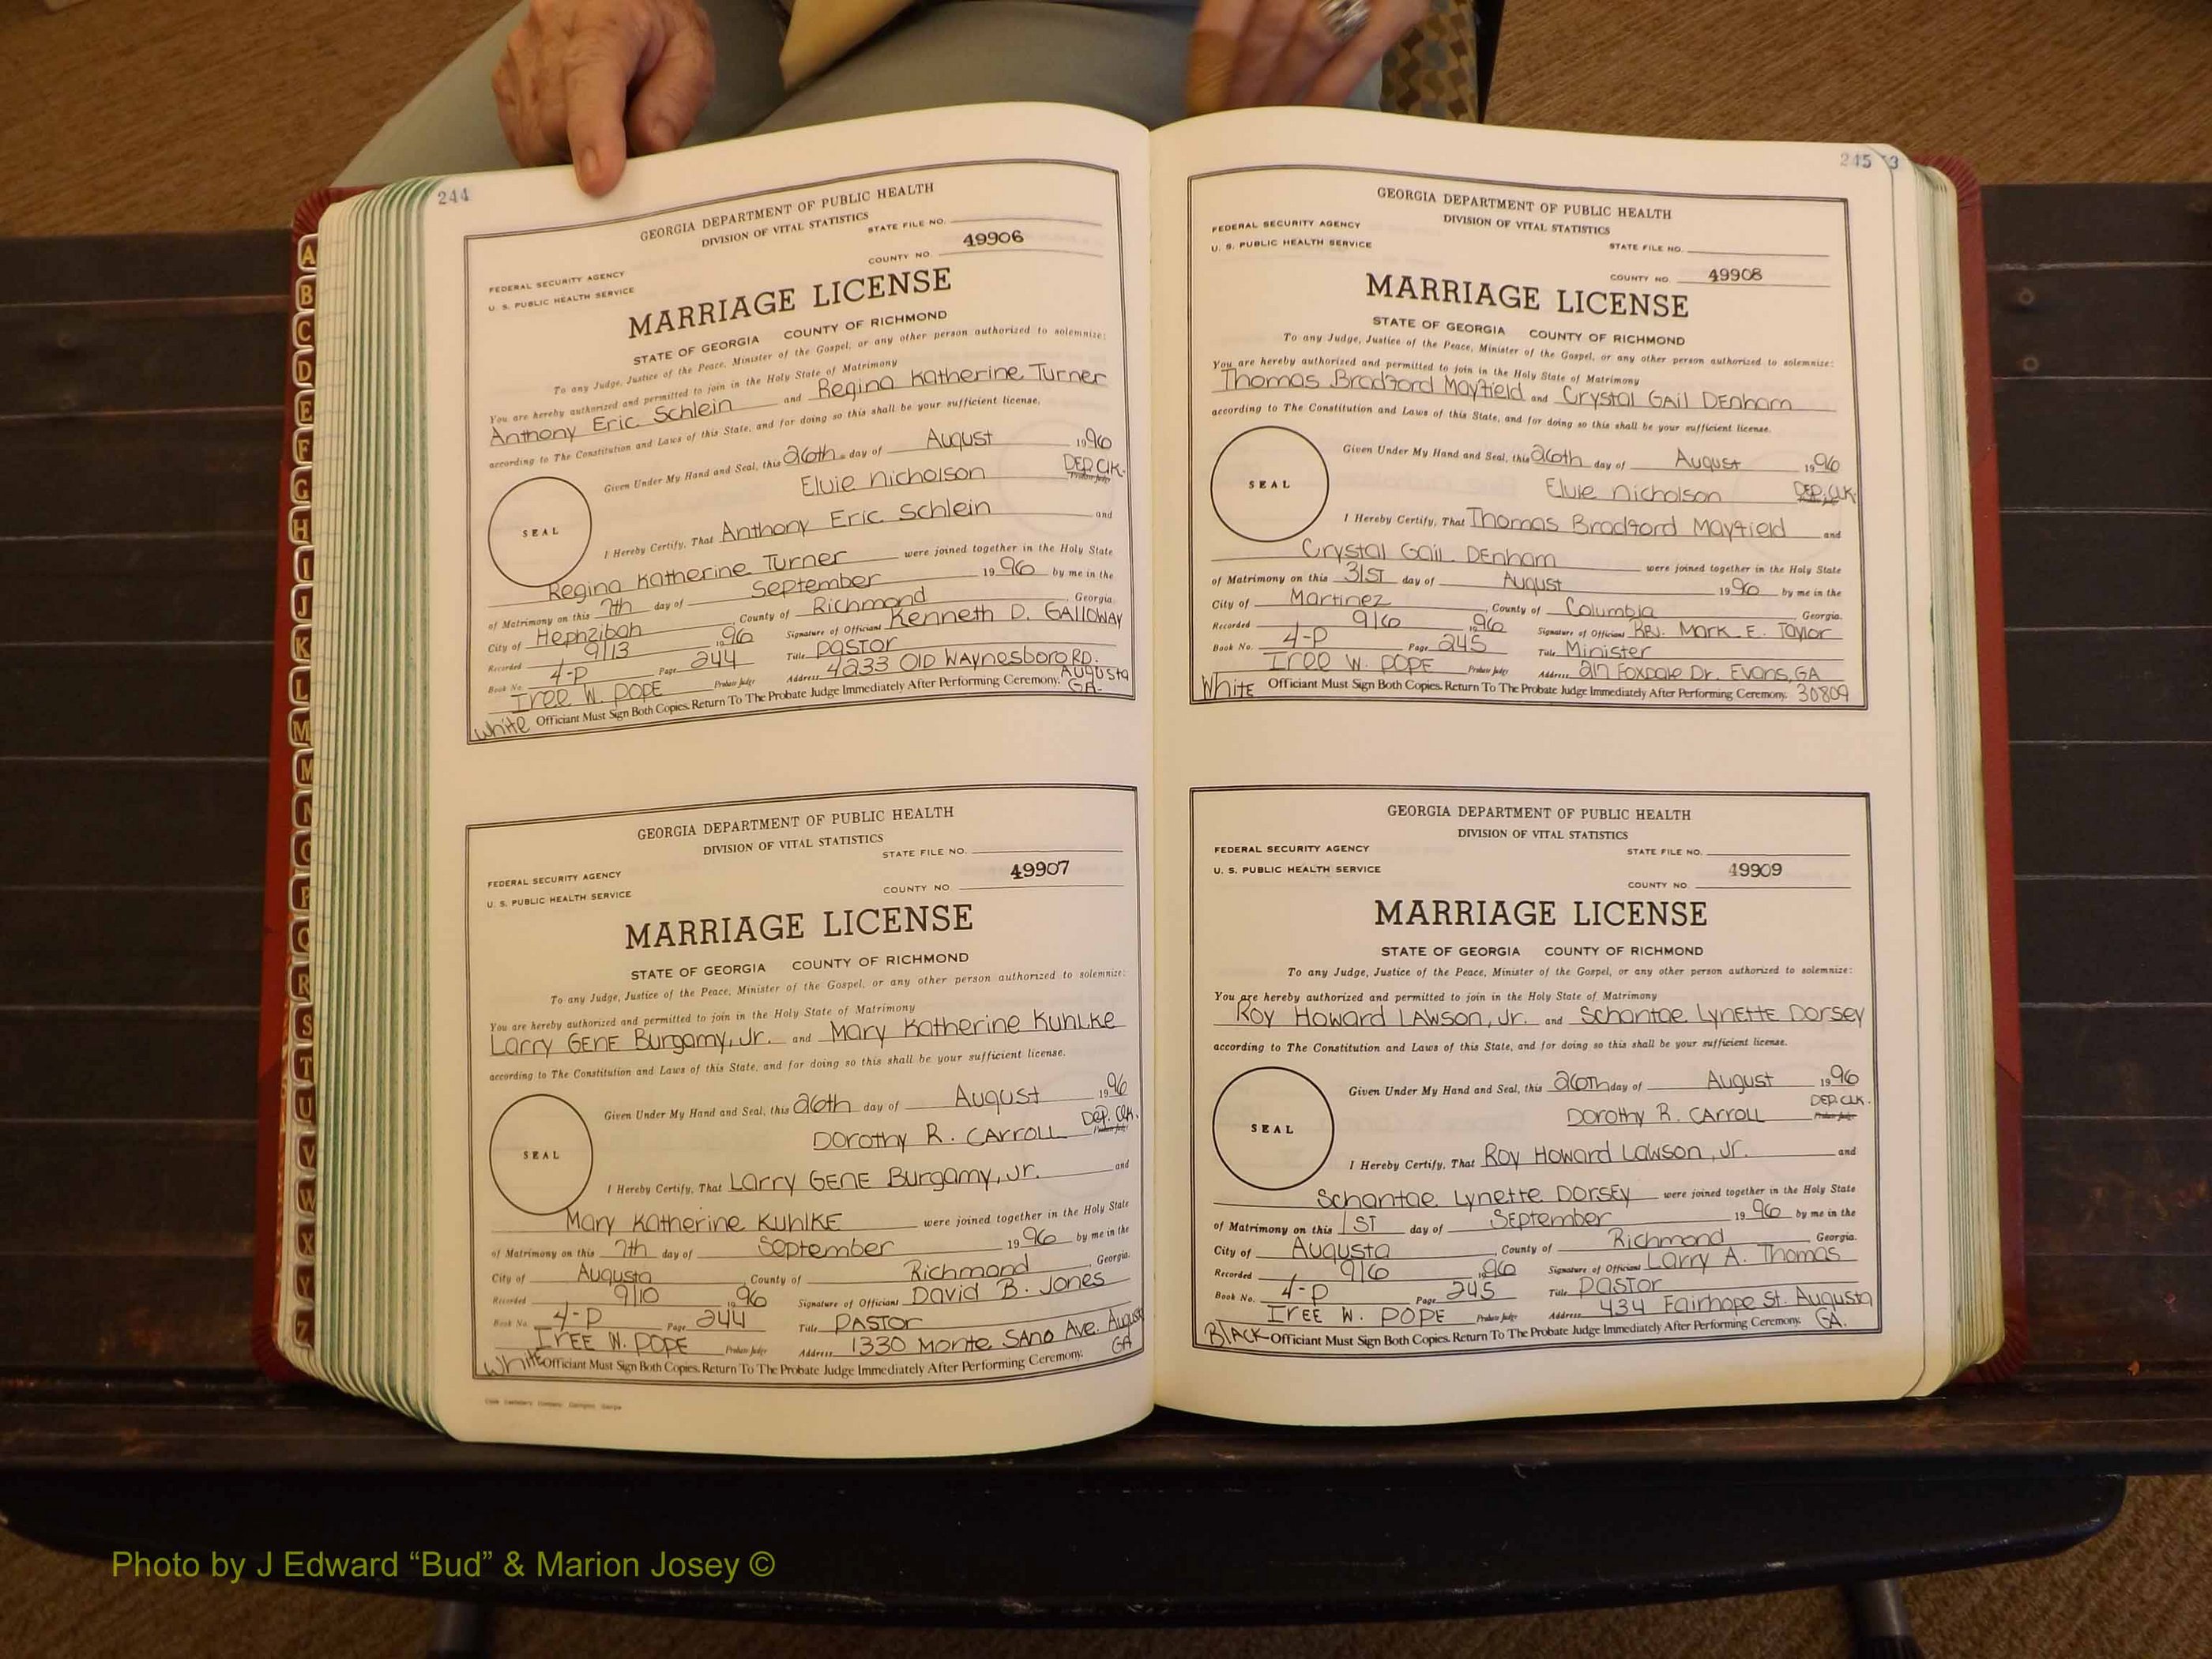 244
GEORGIA DEPARTMENT OF PUBLIC HEALTH
DIVISION OF VITAL STATISTICS
STATE FILE NO.
FEDERAL SECURITY AGENCY
U. S. PUBLIC HEALTH SERVICE
COUNTY NO. 49906
MARRIAGE LICENSE
STATE OF GEORGIA COUNTY OF RICHMOND
To any Judge, Justice of the Peace, Minister of the Gospel, or any other person authorized to solemnize:
You are hereby authorized and permitted to join in the Holy State of Matrimony
Anthony Eric Schlein and Regina Katherine Turner
according to The Constitution and Laws of this State, and for doing so this shall be your sufficient license.
Given Under My Hand and Seal, this 26th day of August 1996
Elvie Nicholson DEP. Clk. Probate Judge
SEAL
I Hereby Certify, That Anthony Eric Schlein and
Regina Katherine Turner were joined together in the Holy State
of Matrimony on this 7th day of September 1996 by me in the
City of Hephzibah, County of Richmond, Georgia.
Recorded 9/13 1996 Signature of Officiant Kenneth D. GALLOWAY
Book No. 4-P Page 244 Title PASTOR
Iree W. POPE Probate Judge Address 4233 OlD WAynesboro RD. Augusta GA.
White Officiant Must Sign Both Copies. Return To The Probate Judge Immediately After Performing Ceremony.
GEORGIA DEPARTMENT OF PUBLIC HEALTH
DIVISION OF VITAL STATISTICS
STATE FILE NO.
FEDERAL SECURITY AGENCY
U. S. PUBLIC HEALTH SERVICE
COUNTY NO 49907
MARRIAGE LICENSE
STATE OF GEORGIA COUNTY OF RICHMOND
To any Judge, Justice of the Peace, Minister of the Gospel, or any other person authorized to solemnize:
You are hereby authorized and permitted to join in the Holy State of Matrimony
Larry GENE Burgamy, Jr. and Mary Katherine Kuhlke
according to The Constitution and Laws of this State, and for doing so this shall be your sufficient license.
Given Under My Hand and Seal, this 26th day of August 1996
Dorothy R. CARROLL DEP. Clk. Probate Judge
SEAL
I Hereby Certify, That Larry GENE Burgamy, Jr. and
Mary Katherine KuhlKE were joined together in the Holy State
of Matrimony on this 7th day of September 1996 by me in the
City of Augusta, County of Richmond, Georgia.
Recorded 9/10 1996 Signature of Officiant David B. Jones
Book No. 4-P Page 244 Title PASTOR
IrEE W. POPE Probate Judge Address 1330 Monte SAno Ave. August GA
White Officiant Must Sign Both Copies. Return To The Probate Judge Immediately After Performing Ceremony.
245 3
GEORGIA DEPARTMENT OF PUBLIC HEALTH
DIVISION OF VITAL STATISTICS
FEDERAL SECURITY AGENCY
U. S. PUBLIC HEALTH SERVICE
STATE FILE NO.
COUNTY NO. 49908
MARRIAGE LICENSE
STATE OF GEORGIA COUNTY OF RICHMOND
To any Judge, Justice of the Peace, Minister of the Gospel, or any other person authorized to solemnize:
You are hereby authorized and permitted to join in the Holy State of Matrimony
Thomas Bradford Mayfield and Crystal GAil DEnham
according to The Constitution and Laws of this State, and for doing so this shall be your sufficient license.
Given Under My Hand and Seal, this 26th day of August 1996
Elvie Nicholson DEP. CLK. Probate Judge
SEAL
I Hereby Certify, That Thomas Bradford Mayfield and
Crystal Gail DEnham were joined together in the Holy State
of Matrimony on this 31ST day of August 1996 by me in the
City of Martinez, County of Columbia, Georgia.
Recorded 9/6 1996 Signature of Officiant REV. Mark E. Taylor
Book No. 4-P Page 245 Title Minister
Iree W. POPE Probate Judge Address 217 Foxdale Dr. Evans, GA
White Officiant Must Sign Both Copies. Return To The Probate Judge Immediately After Performing Ceremony. 30809
GEORGIA DEPARTMENT OF PUBLIC HEALTH
DIVISION OF VITAL STATISTICS
FEDERAL SECURITY AGENCY
STATE FILE NO.
U. S. PUBLIC HEALTH SERVICE
COUNTY NO. 49909
MARRIAGE LICENSE
STATE OF GEORGIA COUNTY OF RICHMOND
To any Judge, Justice of the Peace, Minister of the Gospel, or any other person authorized to solemnize:
You are hereby authorized and permitted to join in the Holy State of Matrimony
Roy Howard LAwson, Jr. and Schantae LynETTE Dorsey
according to The Constitution and Laws of this State, and for doing so this shall be your sufficient license.
Given Under My Hand and Seal, this 26TH day of August 1996
Dorothy R. CARROLL DEP. CLK. Probate Judge
SEAL
I Hereby Certify, That Roy Howard Lawson, Jr. and
Schantae Lynette DORSEY were joined together in the Holy State
of Matrimony on this 1ST day of SEptember 1996 by me in the
City of Augusta, County of Richmond Georgia.
Recorded 9/6 1996 Signature of Officiant Larry A. Thomas
Book No. 4-P Page 245 Title PASTOR
IrEE W. POPE Probate Judge Address 434 Fairhope St. Augusta GA.
BlACK Officiant Must Sign Both Copies. Return To The Probate Judge Immediately After Performing Ceremony.
A
B
C
D
E
F
G
H
I
J
K
L
M
M
N
O
P
Q
R
S
T
U
V
W
X
Y
Z
Photo by J Edward “Bud” & Marion Josey ©